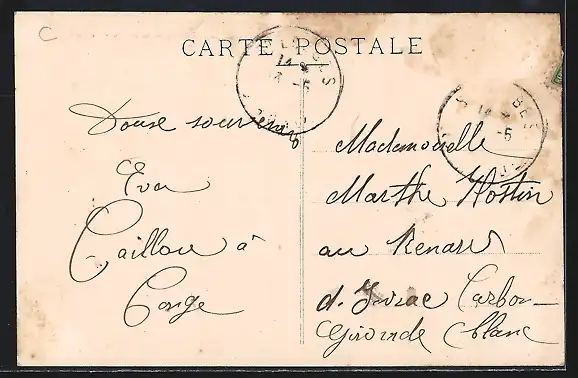 C
CARTE POSTALE
Douse souvenir
Eva
Caillou à
Conge
Mademoiselle
Marthe Hostin
au Renard
d. Izrac Carbon-
Gironde blanc